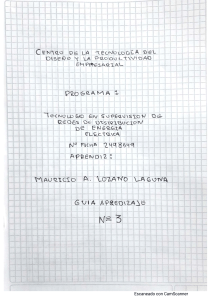 CENTRO DE LA TECNOLOGIA DEL
DISEÑO Y LA PRODUCTIVIDAD
EMPRESARIAL
PROGRAMA 1
TECNOLOGO EN SUPERVISION DE
REDES DE DISTRIBUCION
DE ENERGIA
ELECTRICA
Nº FICHA 2498649
APRENDIZ:
MAURICIO A. LOZANO LAGUNA
GUIA APREDIZAJE
Nº 3
Escaneado con CamScanner